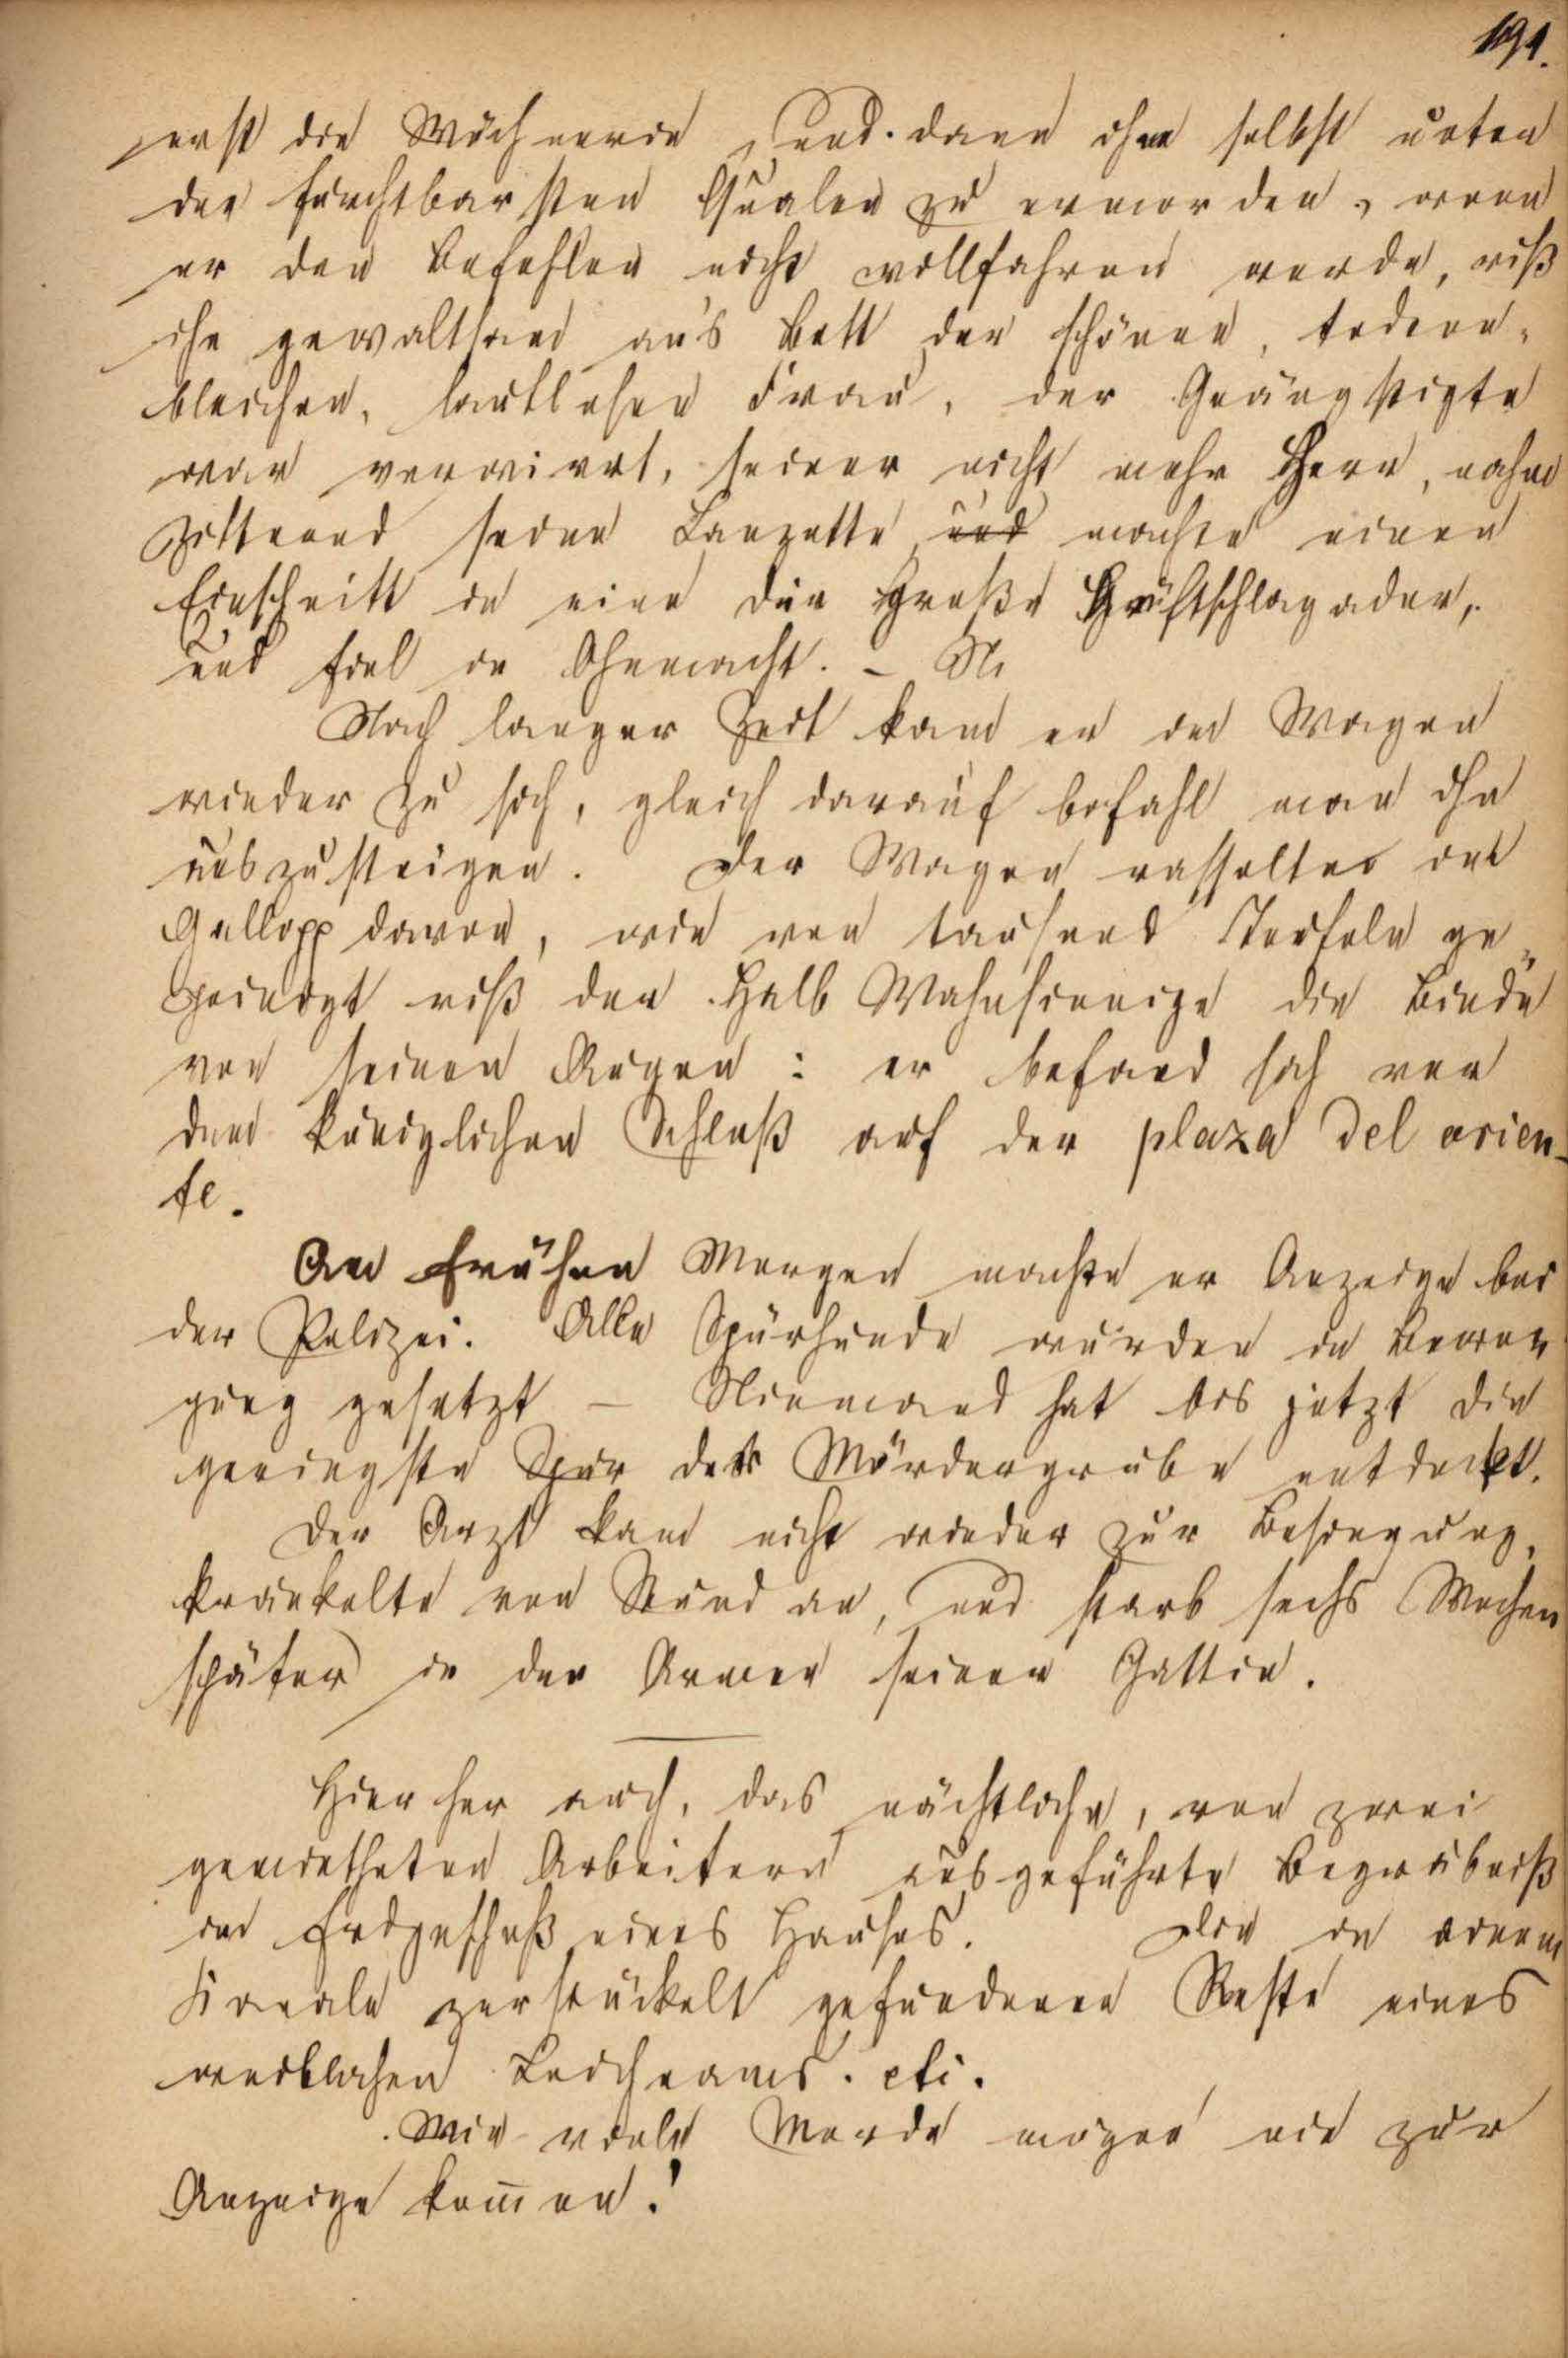 191.
erst die Wöchnerin, und dann ihn selbst unter
den furchtbarsten Qualen zu ermorden, wenn
er den Befehlen nicht willfahren werde, riß
ihn gewaltsam an's Bett der schönen, todten-
bleichen, lautlosen Frau, der Geängstigte
war verwirrt, seiner nicht mehr Herr, nahm
zitternd seine Lanzette, und machte einen
Einschnitt in eine die große Hüftschlagader,
und fiel in Ohnmacht. – N
Nach langer Zeit kam er im Wagen
wieder zu sich, gleich darauf befahl man ihn
auszusteigen. Der Wagen rasselte im
Gallopp davon, wie von tausend Teufeln ge-
peinigt riß der Halb Wahnsinnige die Binde
von seinen Augen: er befand sich vor
dem königlichen Schloß auf der plaza del orien-
te.
Am frühen Morgen machte er Anzeige bei
der Polizei. Alle Spürhunde wurden in Bewe-
gung gesetzt – Niemand hat bis jetzt die
geringste Spur der Mördergrube entdeckt.
Der Arzt kam nicht wieder zur Besinnung,
kränkelte von Stund an, und starb sechs Wochen
später in den Armen seiner Gattin.
Hierher auch, das nächtliche, von zwei
gemietheten Arbeitern ausgeführte Begräbniß
im Erdgeschoß eines Hauses. Die in einem
Kanale zerstückelt gefundenen Reste eines
weiblichen Leichnams. etc.
Wie viele Morde mögen nie zur
Anzeige kom̄en!